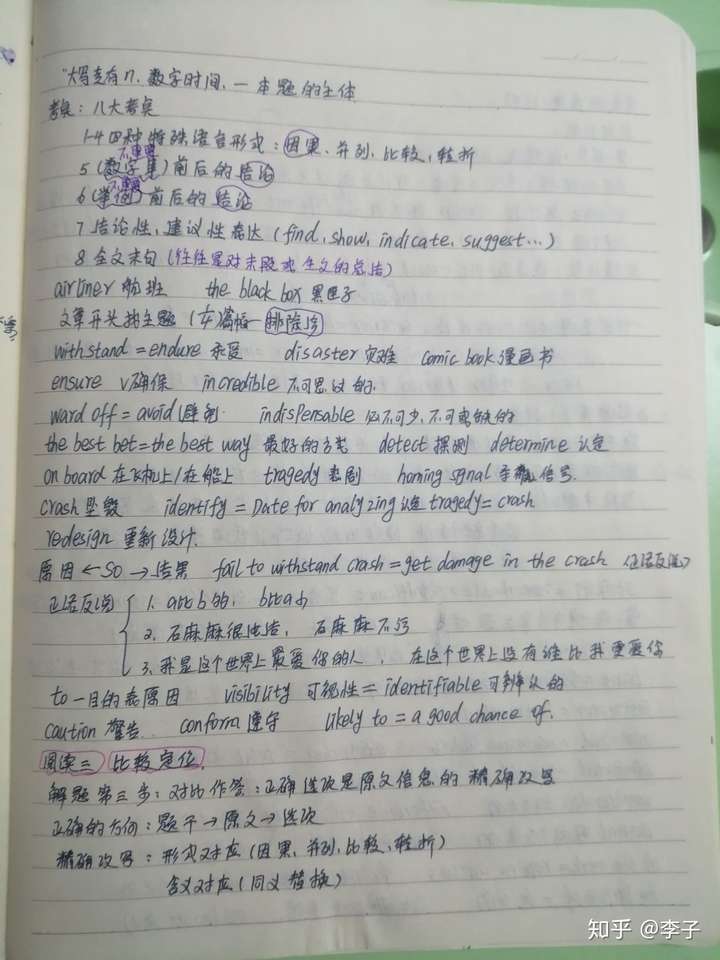 大写专有n. 数字时间、一本题的主体
考点: 八大考点
1-4 四种特殊语言形式: 因果、并列, 比较, 转折
不重要
5 (数字集) 前后的结论
不重要
6 (举例) 前后的结论
7 结论性, 建议性表达 (find, show, indicate, suggest...)
8 全文末句 (往往是对末段或全文的总结)
airliner 航班 the black box 黑匣子
文章开头找主题 (左)篇幅一 排除法
withstand = endure 承受 disaster 灾难 comic book 漫画书
ensure v确保 incredible 不可思议的.
ward off = avoid 避免. indispensable 必不可少, 不可或缺的
the best bet = the best way 最好的方式 detect 探测 determine 认定
on board 在飞机上/在船上 tragedy 悲剧 homing signal 导航信号.
crash 坠毁 identify = Date for analyzing 认定 tragedy = crash
redesign 重新设计.
原因 ← SO → 结果 fail to withstand crash = get damage in the crash (正话反说)
正话反说 1. a比b的, b比a小
2. 石麻麻很纯洁, 石麻麻不污
3. 我是这个世界上最爱你的人, 在这个世界上没有谁比我更爱你
to 一目的表原因 visibility 可视性 = identifiable 可辨认的
caution 警告. conform 遵守 likely to = a good chance of.
阅读三 比较定位.
解题第三步: 对比作答: 正确选项是原文信息的精确改写
正确的方向: 题干 → 原文 → 选项
精确改写: 形式对应 (因果, 并列, 比较, 转折)
含义对应 (同义替换)
知乎 @李子